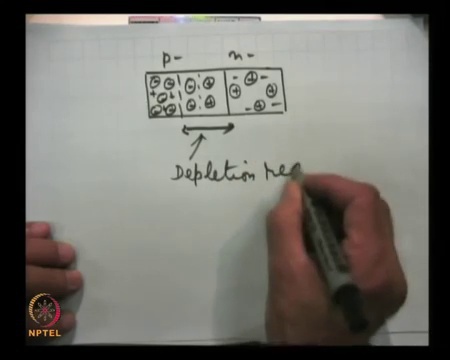 p- n-
Depletion reg
NPTEL